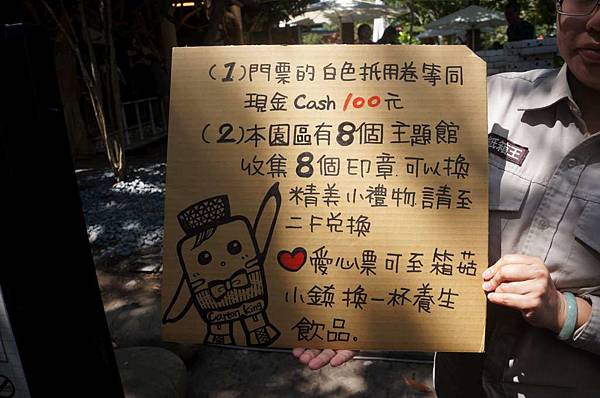 (1)門票的白色抵用卷等同
現金Cash 100元
(2)本園區有8個主題館
收集8個印章.可以換
精美小禮物.請至
二F兌換
愛心票可至箱菇
小鎮換一杯養生
飲品。
Carton King
紙箱王